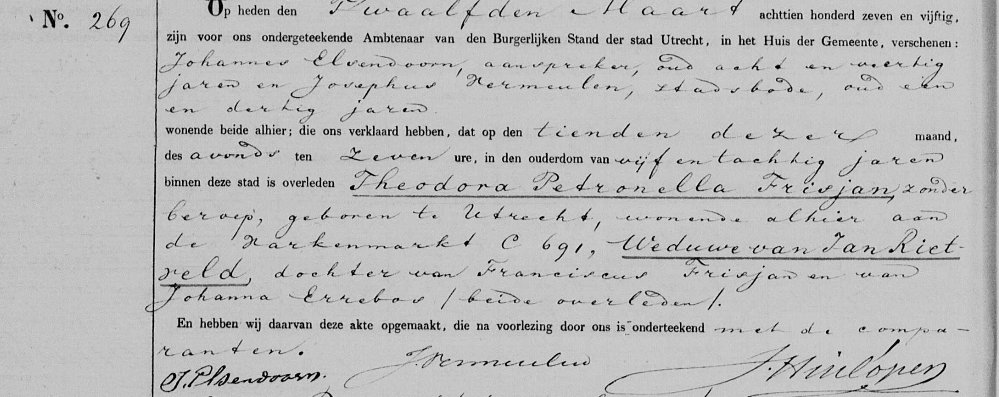 No. 269
Op heden den Twaalfden Maart achttien honderd zeven en vijftig,
zijn voor ons ondergeteekende Ambtenaar van den Burgerlijken Stand der stad Utrecht, in het Huis der Gemeente, verschenen:
Johannes Elsendoorn, aanspreker, oud acht en veertig
jaren en Josephus Vermeulen, stadsbode, oud een
en dertig jaren
wonende beide alhier; die ons verklaard hebben, dat op den tienden dezer maand,
des avonds ten zeven ure, in den ouderdom van vijf en tachtig jaren
binnen deze stad is overleden Theodora Petronella Frisjan, zonder
beroep, geboren te Utrecht, wonende alhier aan
de Varkenmarkt C 691, Weduwe van Jan Riet-
veld, dochter van Franciscus Frisjan en van
Johanna Errebos /beide overleden/.
En hebben wij daarvan deze akte opgemaakt, die na voorlezing door ons is onderteekend met de compa-
ranten.
J. Elsendoorn. J. Vermeulen J. Hinlopen